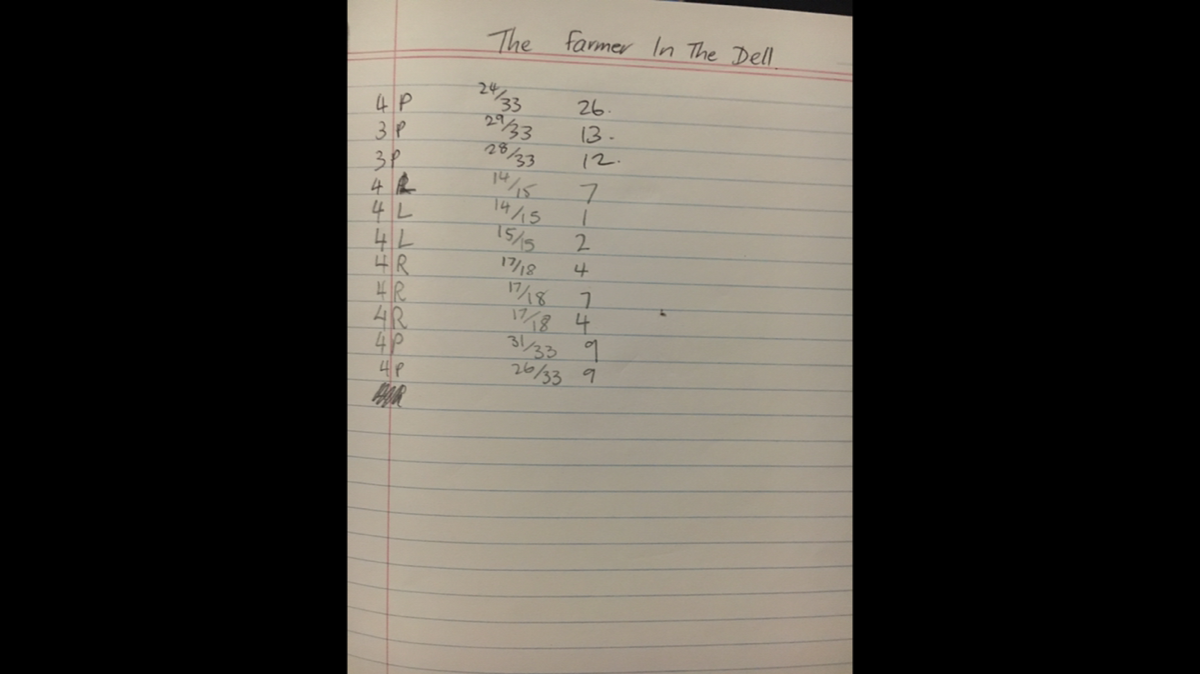 The Farmer In The Dell.
4 P 24/33 26.
3 P 29/33 13.
3 P 28/33 12.
4 L 14/15 7
4 L 14/15 1
4 L 15/15 2
4 R 17/18 4
4 R 17/18 7
4 R 17/18 4
4 P 31/33 9
4 P 26/33 9
R